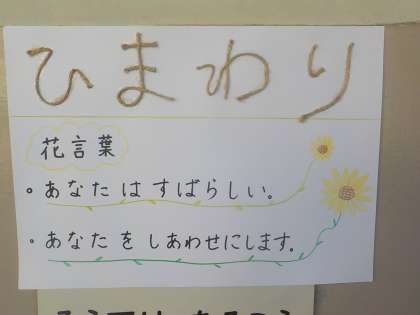 ひまわり
花言葉
。あなたはすばらしい。
。あなたをしあわせにします。